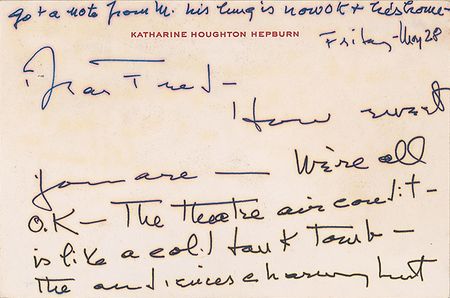 got a note from M. his lung is now OK + he's home—
KATHARINE HOUGHTON HEPBURN
Friday—May 28
Dear Fred—
How sweet
you are — We're all
O.K — The theatre air condit-
is like a cold dank tomb —
the audiences charming but